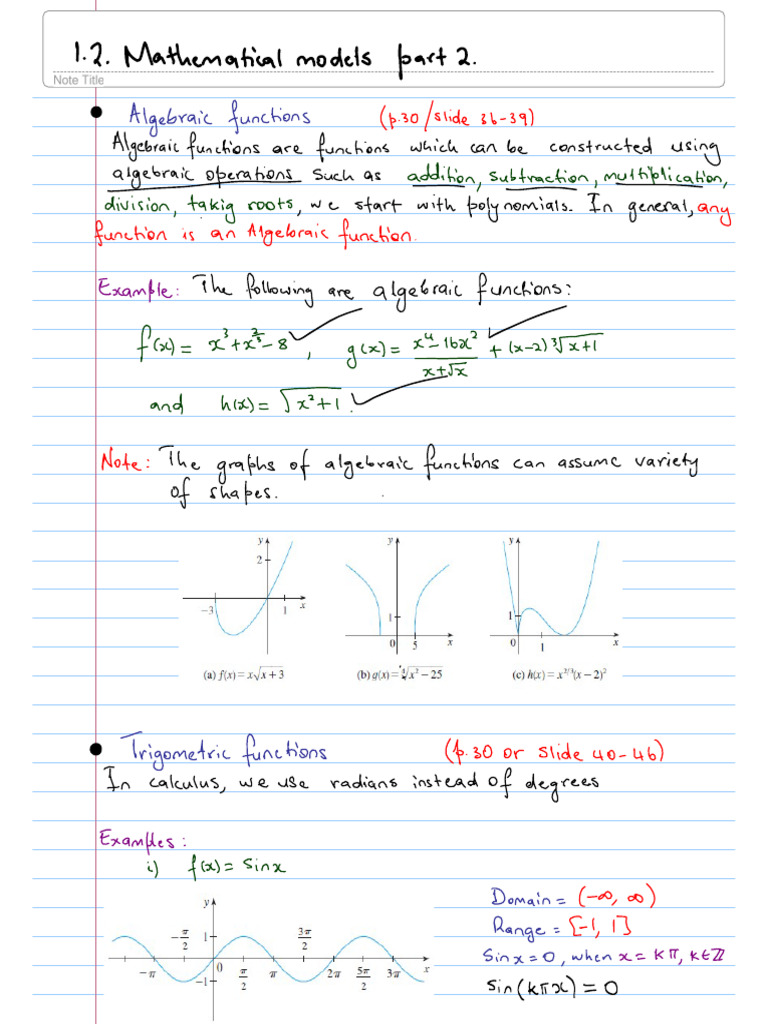 1.2. Mathematical models part 2.
Note Title
Algebraic functions (p.30/slide 36-39)
Algebraic functions are functions which can be constructed using
algebraic operations such as addition, subtraction, multiplication,
division, takig roots, we start with polynomials. In general, any
function is an Algebraic function.
Example: The following are algebraic functions:
f(x) = x³ + x^{2/3} - 8 , g(x) = \frac{x⁴ - 16x²}{x + √x} + (x-2) ∛(x+1)
and h(x) = √(x² + 1) .
Note: The graphs of algebraic functions can assume variety
of shapes.
y 2 -3 1 x
y 1 0 5 x
y 1 0 1 x
(a) f(x) = x√(x + 3) (b) g(x) = ∜(x² - 25) (c) h(x) = x^{2/3}(x - 2)²
Trigometric functions (p.30 or slide 40-46)
In calculus, we use radians instead of degrees
Examples:
i) f(x) = sinx
y -π/2 1 3π/2
-π 0 π/2 π 2π 5π/2 3π x
-1
Domain = (-∞, ∞)
Range = [-1, 1]
Sinx = 0, when x = kπ, k∈ℤ
Sin(kπx) = 0